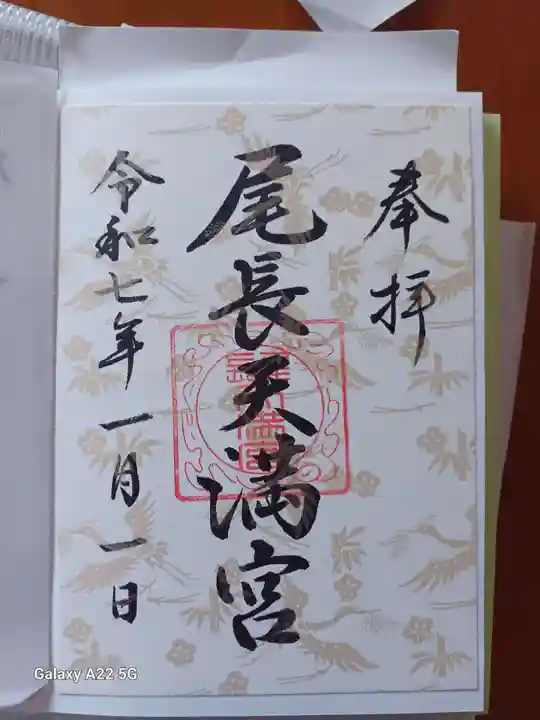 奉拝
尾長天満宮
令和七年一月一日
Galaxy A22 5G